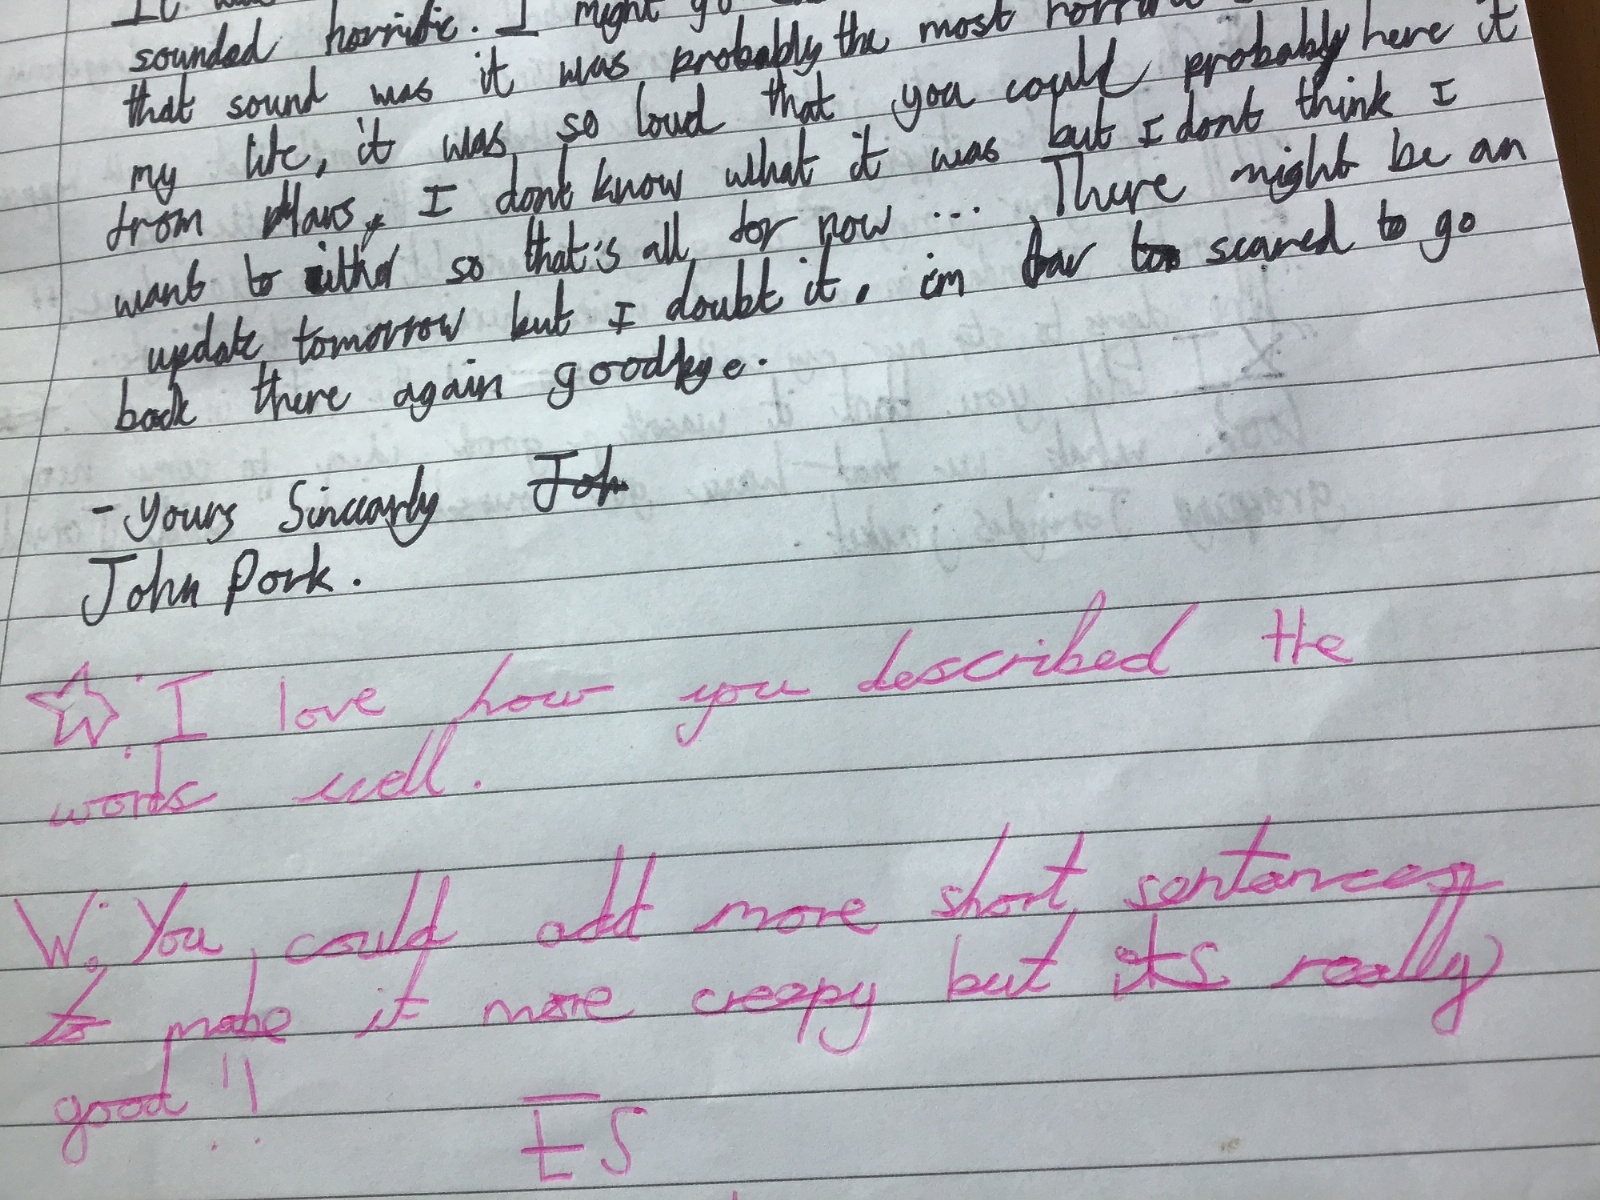 sounded horrific. I might go
that sound was it was probably the most
my life, it was so loud that you could probably here it
from Mars, I dont know what it was but I dont think I
want to either so that's all for now ... There might be an
update tomorrow but I doubt it. im far too scared to go
back there again goodbye.
- Yours Sincearly Joh
John Pork.
☆: I love how you described the
words well.
W: You could add more short sentances
to make it more creepy but its really
good !!
ES